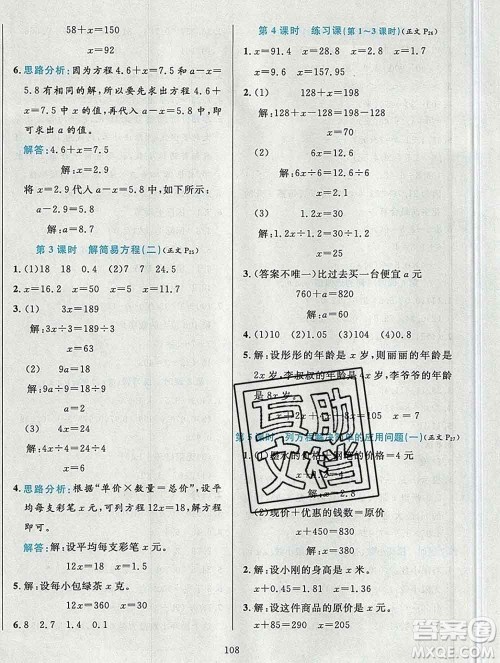 58+x=150
x=92
6. 思路分析: 因为方程 4.6+x=7.5 和 a-x=
5.8 有相同的解, 所以要先求出方程 4.6+
x=7.5 中 x 的值, 再代入 a-x=5.8 中, 即
可求出 a 的值。
解答: 4.6+x=7.5
解: x=2.9
将 x=2.9 代入 a-x=5.8 中, 如下所示。
a-2.9=5.8
解: a=8.7
第 3 课时 解简易方程(二)(正文 P25)
1. (1)18 18 0.4 (2)7 7 24.5
2. x=16.2 x=10 x=5 x=0.5
3. (1) 3x=189
解: 3x÷3=189÷3
x=63
(2) 9a=18
解: 9a÷9=18÷9
a=2
4. 思路分析: 根据“单价×数量=总价”, 设平
均每支彩笔 x 元, 可列方程 12x=18, 再解
方程即可。
解答: 解: 设平均每支彩笔 x 元。
12x=18 x=1.5
5. 解: 设每小包绿茶 x 克。
12x=360 x=30
6. 8 2.7 4 0.4 0 0.1
第 4 课时 练习课(第 1~3 课时)(正文 P26)
1. x=91.4 x=288 x=4 x=0.3
2. (1) 128+x=198
解: 128+x-128=198-128
x=70
(2) 6x=12
解: 6x÷6=12÷6
x=2
(3) 1.2x=1.2
解: 1.2x÷1.2=1.2÷1.2
x=1
3. (答案不唯一)比原来买一台便宜 a 元
760+a=820
解: a=60
4. (1)0.15 (2)1.05 (3)2.9 (4)108
5. 解: 设彤彤的年龄是 x 岁, 则丽丽的年龄是
2x 岁, 李叔叔的年龄是 4x 岁, 李爷爷的年龄
是 8x 岁。
x+2x+4x+8x=120 x=8
列方程解决简单的应用问题(一)(正文 P27)
的价格=4 元
x=2.8
(2)现价+优惠的钱数=原价
x+450=830
x=380
2. 解: 设小刚的身高是 x 米。
x+0.2=1.6 x=1.4
3. 解: 设这件商品的原价是 x 元。
x-80=320 x=400
108
互助
文档
答案圈
MXQE.COM